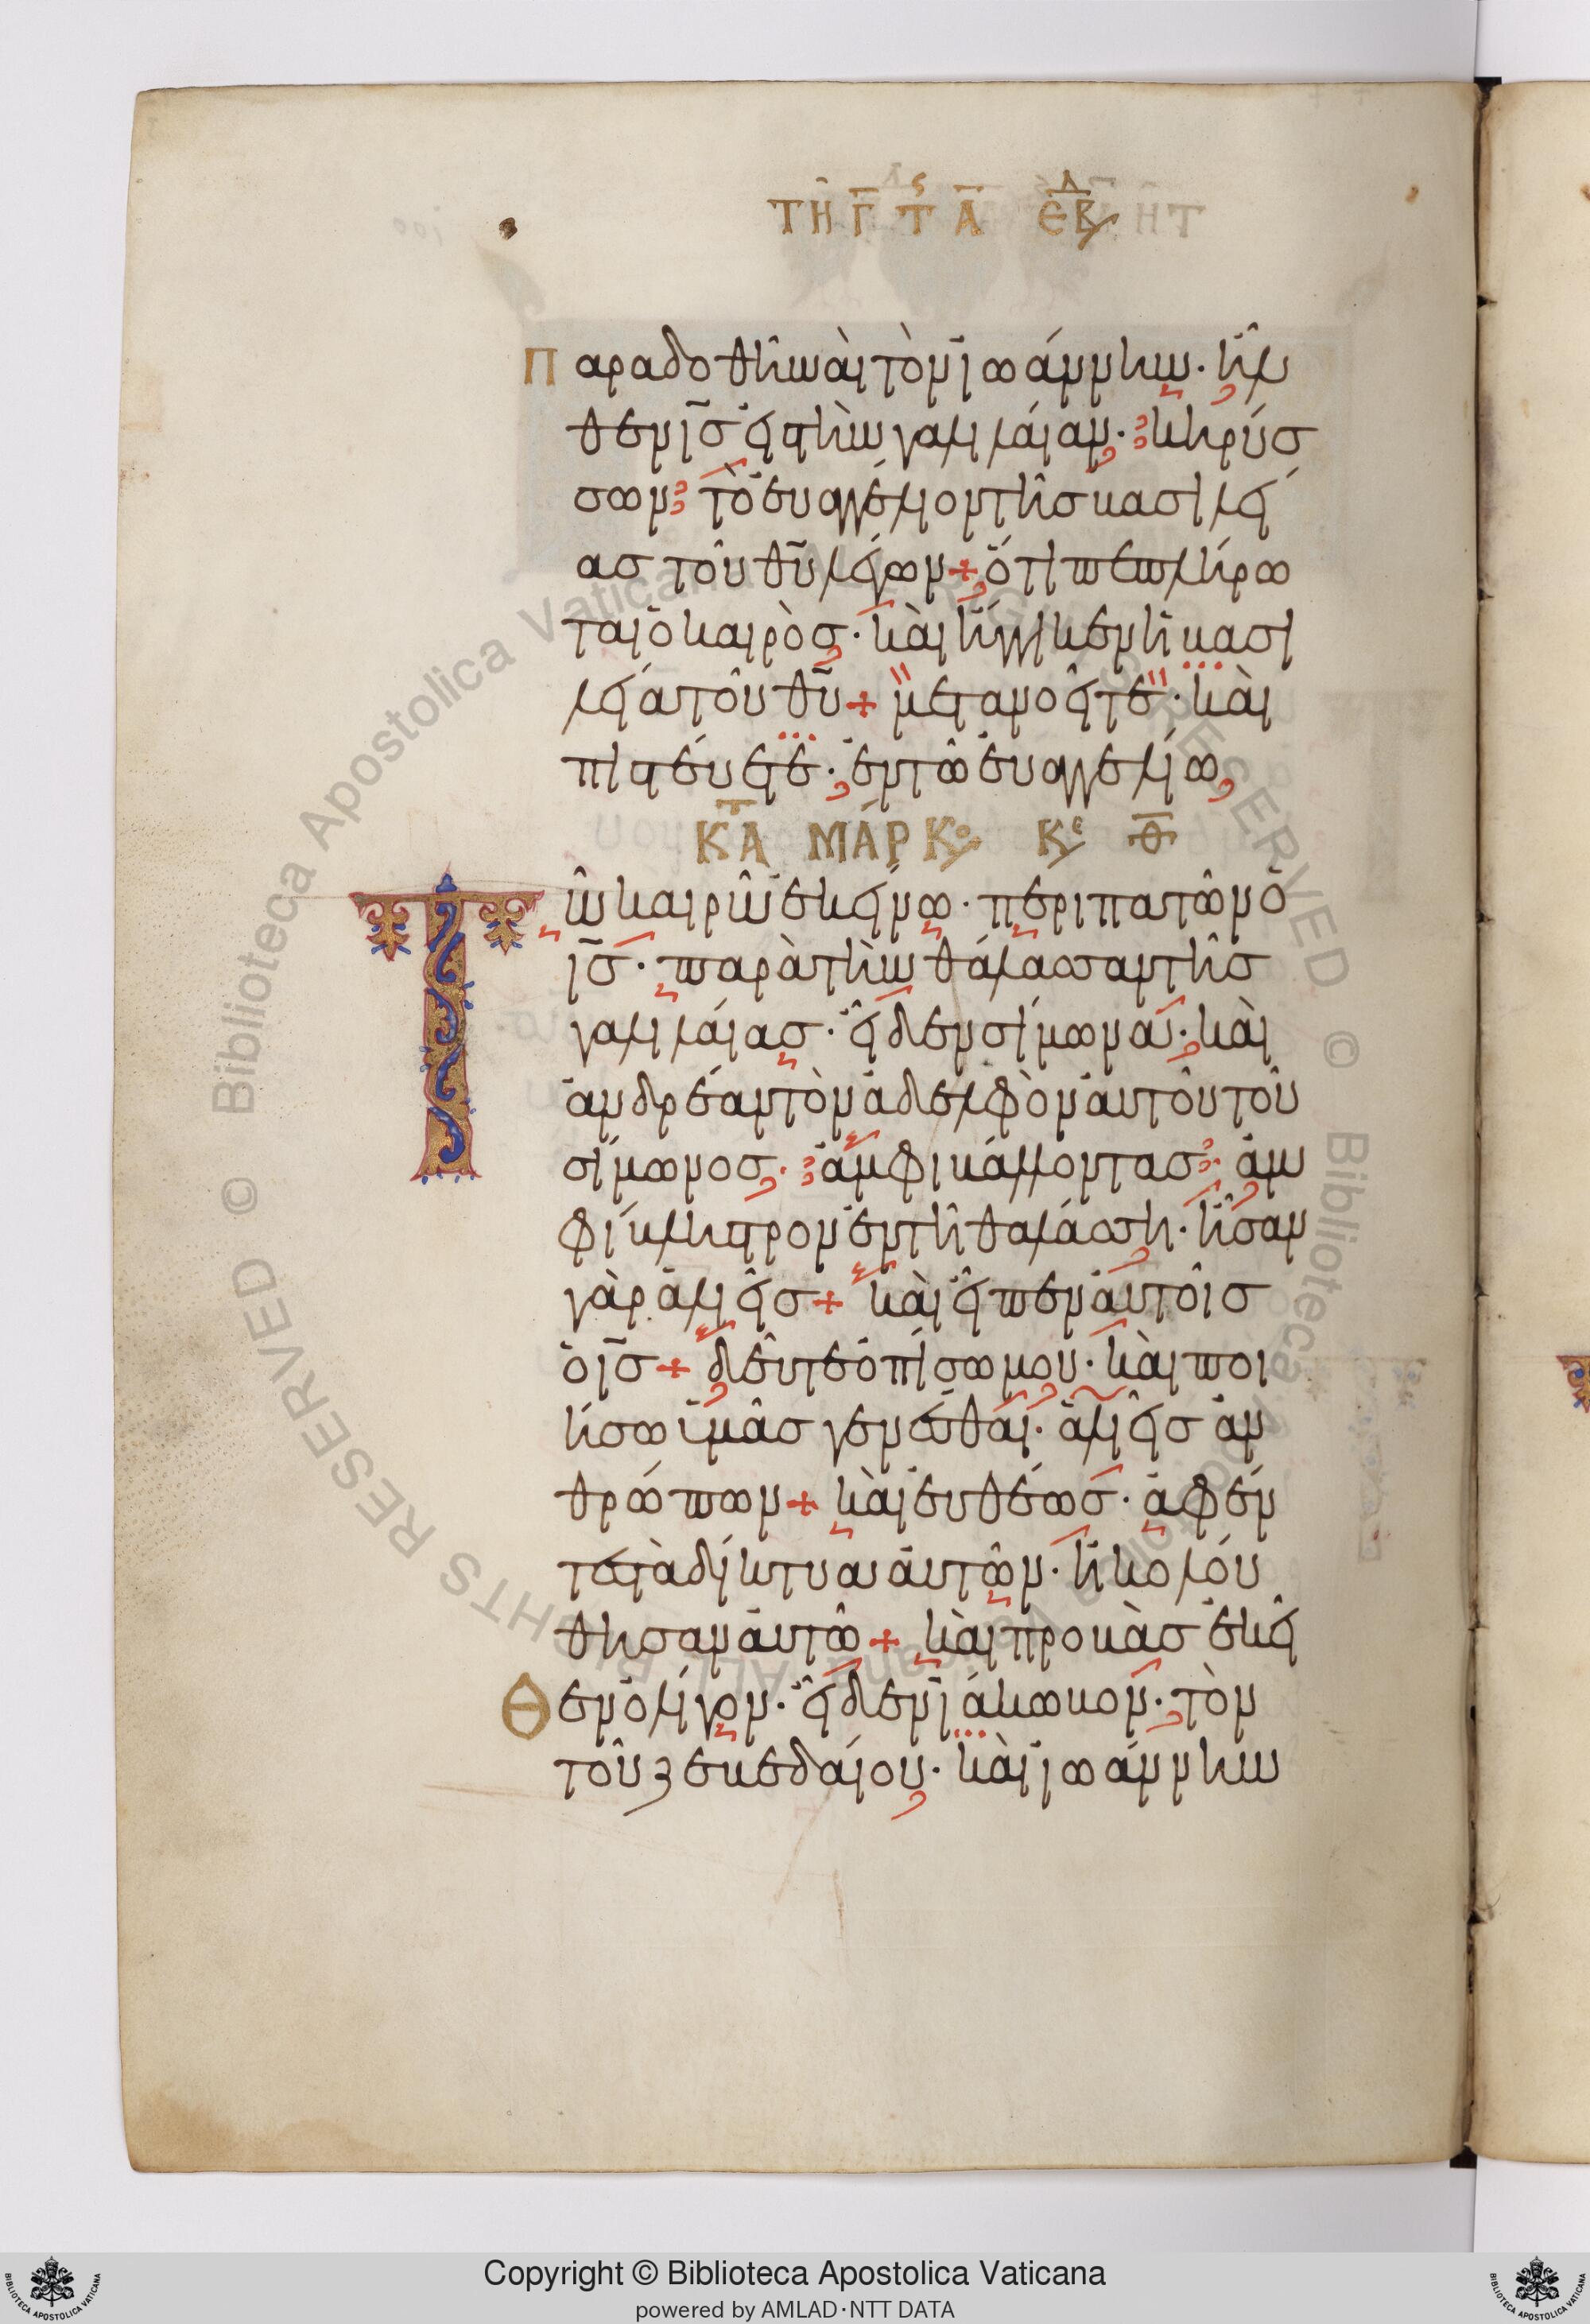 ΤΗ Γ Τ Α ΕΒΔ
Παραδοθῆναι τὸν ἰωάννην· ἦλ
θεν ις εἰς τὴν γαλιλαίαν· κηρύσ
σων τὸ εὐαγγέλιον τῆς βασιλεί
ας τοῦ θυ λέγων + ὅτι πεπλήρω
ται ὁ καιρὸς· καὶ ἤγγικεν ἡ βασι
λεία τοῦ θυ + μετανοεῖτε· καὶ
πιστεύετε· ἐν τῶ εὐαγγελίω
ΚΑΤ ΜΑΡΚΟ ΚΕ Θ
Τῶ καιρῶ ἐκείνω· περιπατῶν ὁ
ις· παρὰ τὴν θάλασσαν τῆς
γαλιλαίας· εἶδεν σίμωνα· καὶ
ἀνδρέαν τὸν ἀδελφὸν αὐτοῦ τοῦ
σίμωνος· ἀμφιβάλλοντας· ἀμ
φίβληστρον ἐν τῆ θαλάσση· ἦσαν
γὰρ ἁλιεῖς + καὶ εἶπεν αὐτοῖς
ὁ ις + δεῦτε ὀπίσω μου· καὶ ποι
ήσω ὑμᾶς γενέσθαι· ἁλιεῖς ἀν
θρώπων + καὶ εὐθέως· ἀφέν
τες τὰ δίκτυα αὐτῶν· ἠκολού
θησαν αὐτῶ + καὶ προβὰς ἐκεῖ
Θεν ὀλίγον· εἶδεν ἰάκωβον· τὸν
τοῦ ζεβεδαίου· καὶ ἰωάννην
Copyright © Biblioteca Apostolica Vaticana
powered by AMLAD·NTT DATA